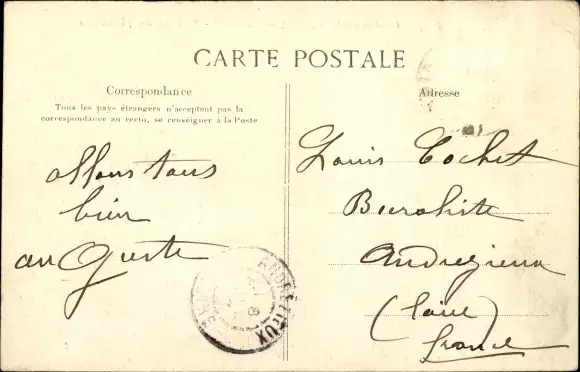 CARTE POSTALE
Correspondance
Tous les pays étrangers n'acceptent pas la
correspondance au recto, se renseigner à la Poste
allons tous
bien
auguste
Adresse
Louis Cochet
Andrezieux
(Loire)
France
ANDREZIEUX